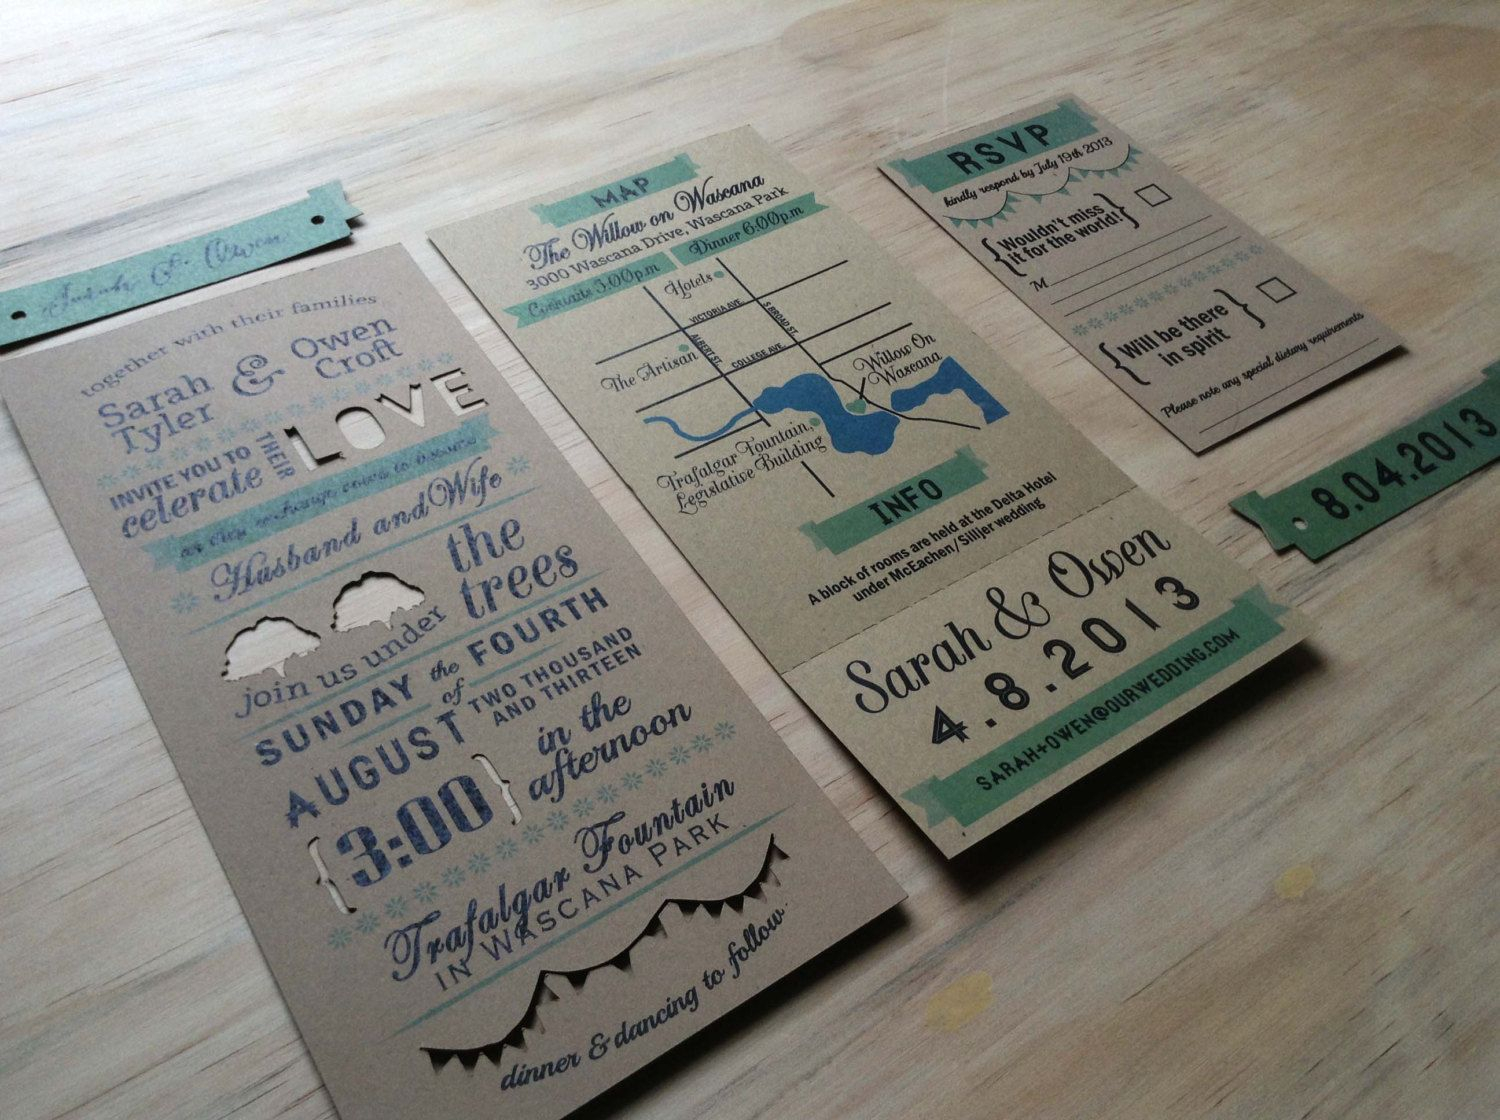 Sarah & Owen
together with their families
Sarah Tyler & Owen Croft
INVITE YOU TO
celerate THEIR LOVE
Husband and Wife
join us under the trees
SUNDAY the FOURTH
of AUGUST TWO THOUSAND
AND THIRTEEN
{3:00} in the
afternoon
Trafalgar Fountain
IN WASCANA PARK
dinner & dancing to follow.
MAP
The Willow on Wascana
3000 Wascana Drive, Wascana Park
Cocktails 5:00p.m
Dinner 6:00p.m
Hotels
VICTORIA AVE.
S BROAD ST.
ALBERT ST.
COLLEGE AVE.
The Artisan
Willow On
Wascana
Trafalgar Fountain,
Legislative Building
INFO
A block of rooms are held at the Delta Hotel
under McEachen/Silljer wedding
Sarah & Owen
4.8.2013
SARAH+OWEN@OURWEDDING.COM
RSVP
kindly respond by July 19th 2013
{Wouldn't miss
it for the world!}
M
{Will be there
in spirit}
Please note any special dietary requirements
8.04.2013